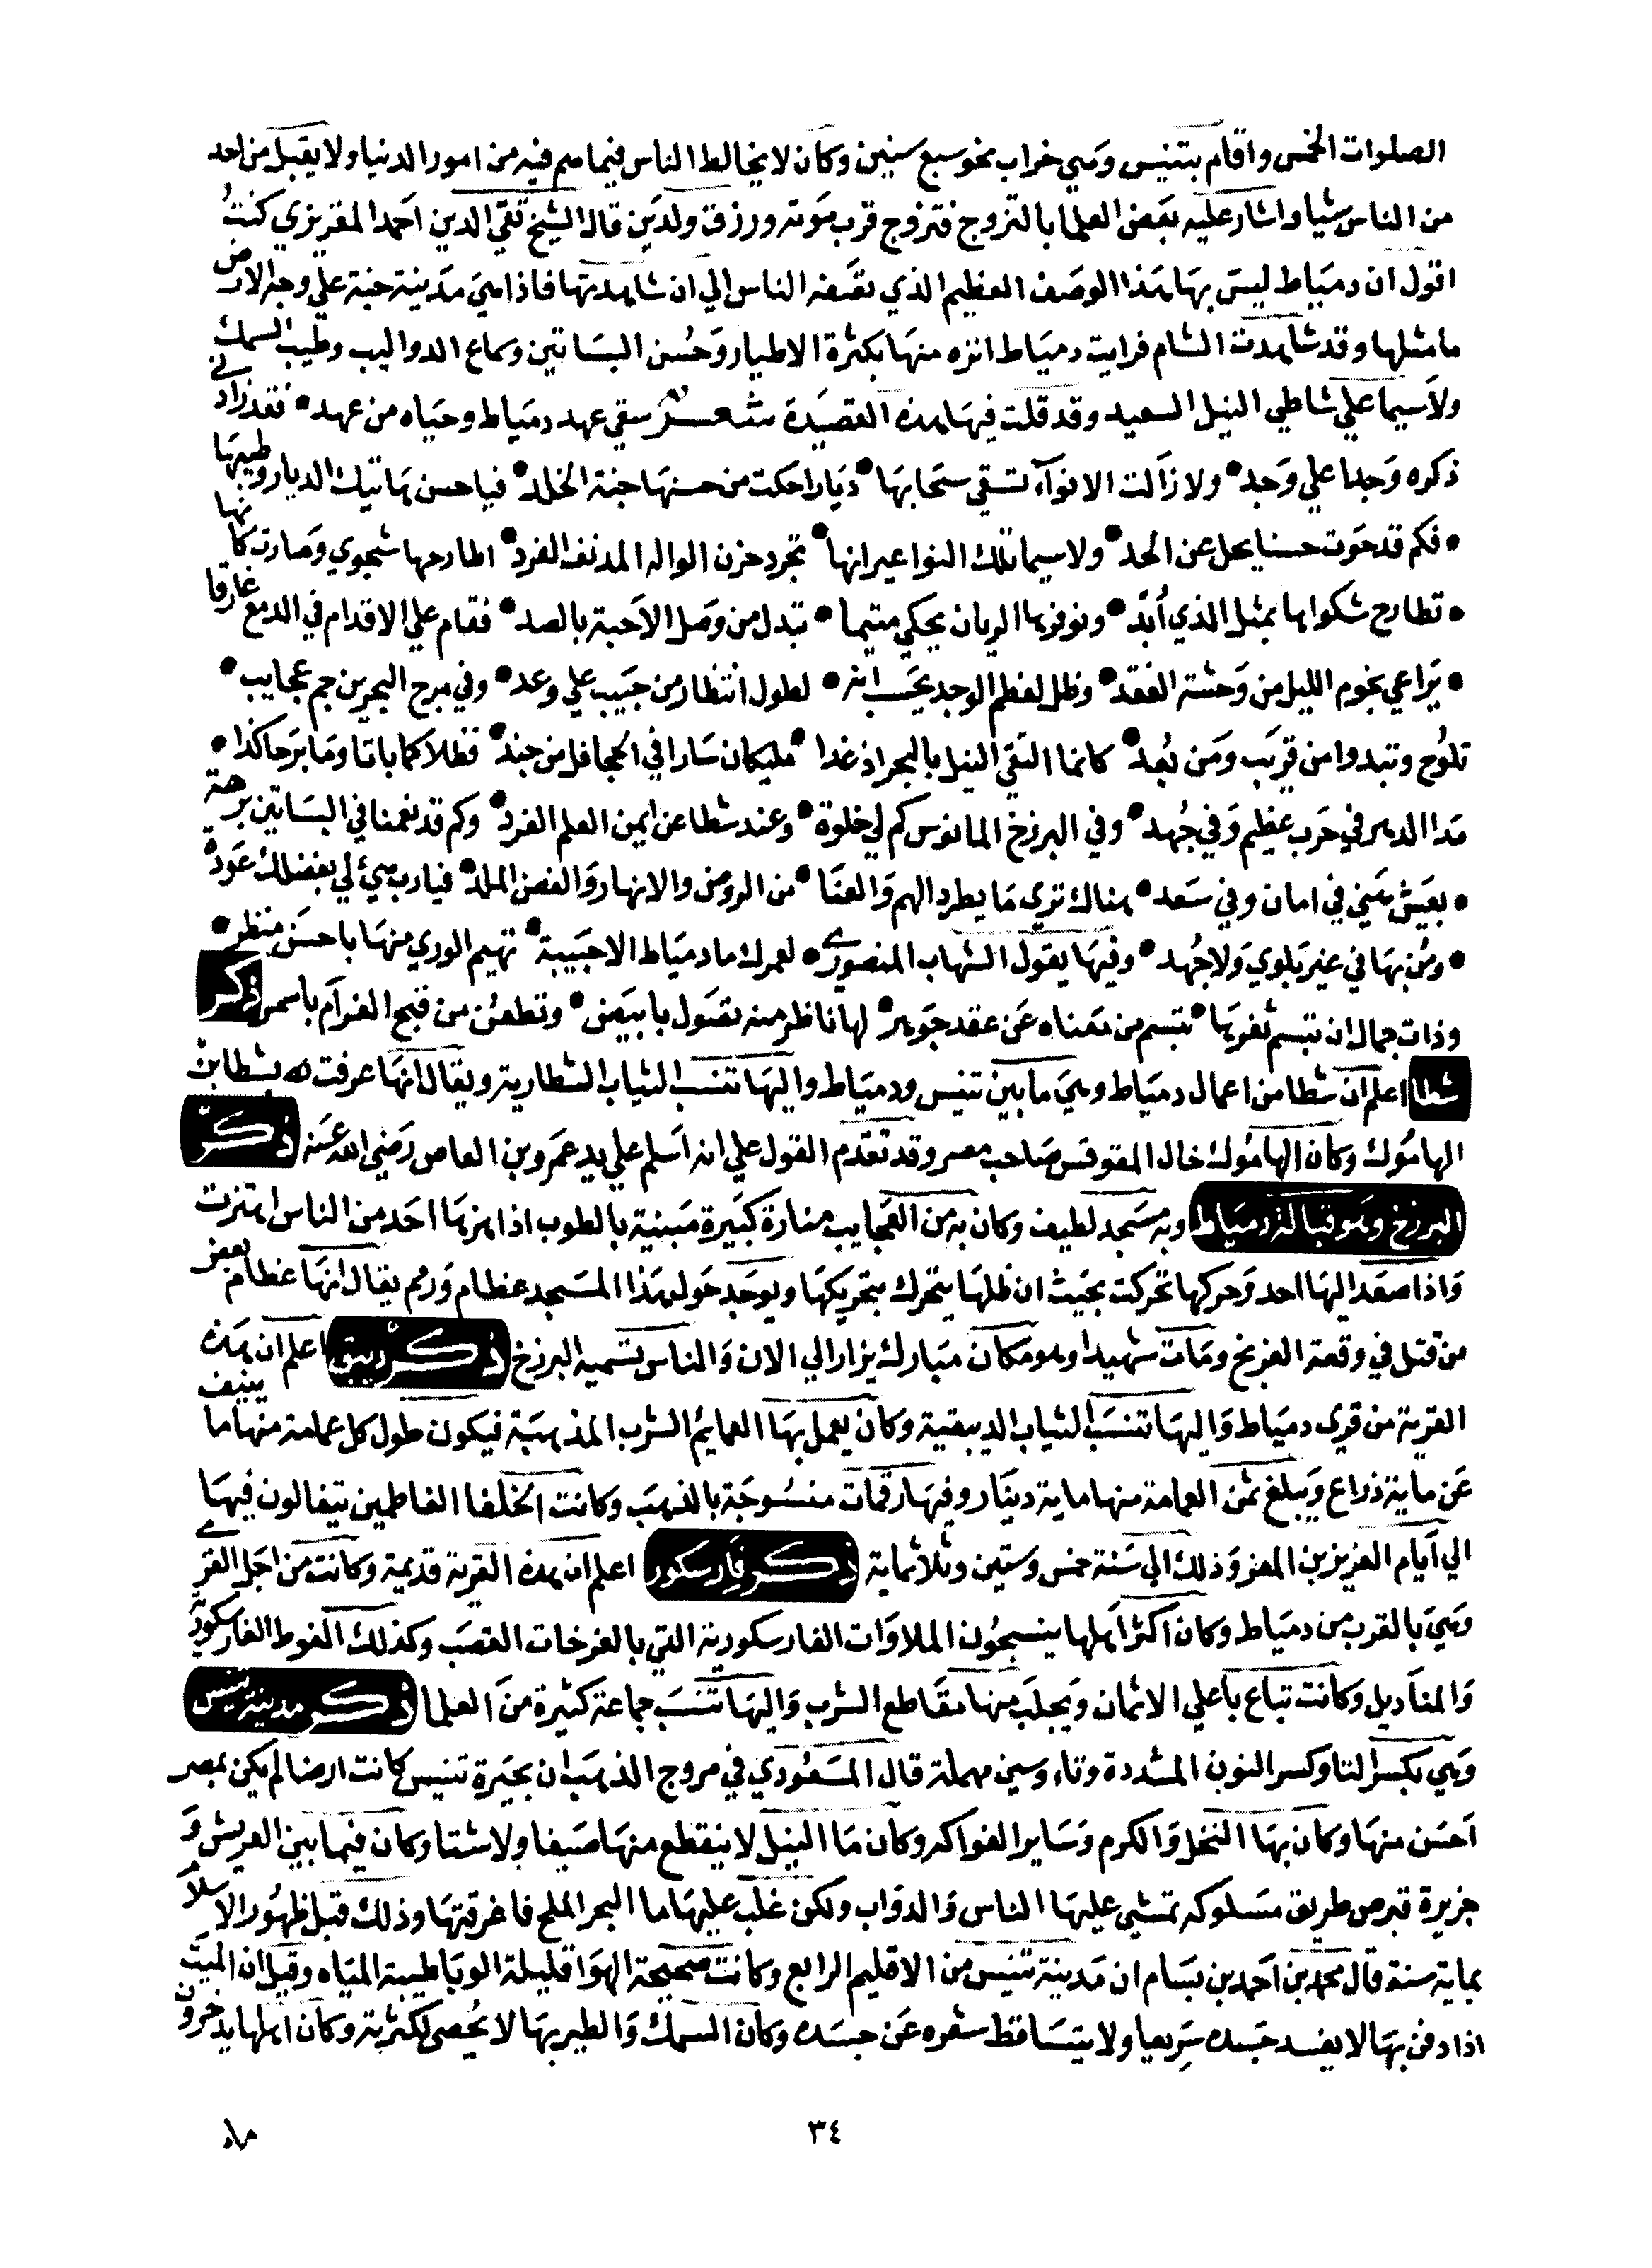 الصلوات الخمس واقام بتنيس وهي خراب نحو سبع سنين وكان لا يخالط الناس فيما هم فيه من امور الدنيا ولا يقبل من احد
من الناس شيا واشار عليه بعض العلما بالتزوج فتزوج قرب موته ورزق ولدين قال الشيخ تقي الدين احمد المقريزي كنت
اقول ان دمياط ليس بها هذا الوصف العظيم الذي تصفه الناس الي ان شاهدتها فاذا هي مدينة جنة علي وجه الارض
ما مثلها وقد شاهدت الشام فرايت دمياط انزه منها بكثرة الاطيار وحسن البساتين وسماع الدواليب وطيب السمك
ولا سيما علي شاطي النيل السعيد وقد قلت فيها هذه القصيدة شعر سقي عهد دمياط وحياه من عهد • فقد زادني
ذكره وجدا علي وجد • ولا زالت الانوآء تسقي سحابها • ديارا حكت من حسنها جنة الخلد • فيا حسن هاتيك الديار وطيبها
• فكم قد حوت حسنا يجل عن الحد • ولا سيما تلك النواعير انها • تجرد حزن الواله المدنف الفرد • اطارحها شجوي وصارت كانها
• تطارح شكواها بمثل الذي أبد • ونوفرها الريان يحكي متيما • تبدل من وصل الاحبة بالصد • فقام علي الاقدام في الدمع غارقا
• يراعي نجوم الليل من وحشة الفقد • وظل لعظم الوجد يحسب انه • لطول انتظار من حبيب علي وعد • وفي مرج البحرين جم عجايب •
تلوح وتبدوا من قريب ومن بعد • كانما التقي النيل بالبحر اذ غدا • مليكان سارا في الجحافل من جند • فظلا كما باتا وما برحا كذا •
مدا الدهر في حرب عظيم وفي جهد • وفي البرزخ المانوس كم لي خلوة • وعند شطا عن ايمن العلم الفرد • وكم قد نعمنا في البساتين برهة
• بعيش هني في امان وفي سعد • هناك تري ما يطرد الهم والعنا • من الروض والانهار والغصن الملد • فيارب هيئ لي بفضلك عودة
• ومن بها في غير بلوي ولا جهد • وفيها يقول الشهاب المنصوري • لعمرك ما دمياط الا حبيبة • تهيم الوري منها باحسن منظر •
وذات جمال ان تبسم ثغرها • تبسم من معناه عن عقد جوهر • لها ناظر منه تصول بابيض • وتطعن من قبح الغرام باسمر ذكر
شطا اعلم ان شطا من اعمال دمياط وهي ما بين تنيس ودمياط واليها تنسب الثياب الشطارية ويقال انها عرفت بشطا بن
الهاموك وكان الهاموك خال المقوقس صاحب مصر وقد تقدم القول علي انه اسلم علي يد عمرو بن العاص رضي الله عنه ذكر
البرزخ وهو قبالة دمياط وبه مسجد لطيف وكان به من العجايب منارة كبيرة مبنية بالطوب اذا هزها احد من الناس اهتزت
واذا صعد اليها احد وحركها تحركت بحيث ان ظلها يتحرك بتحريكها ويوجد حول هذا المسجد عظام ورمم يقال انها عظام بعض
من قتل في وقعة الفرنج ومات شهيدا وهو مكان مبارك يزار الي الان والناس تسميه البرزخ ذكر دبيق اعلم ان هذه
القرية من قري دمياط واليها تنسب الثياب الدبيقية وكان يعمل بها العمايم الشرب المذهبة فيكون طول كل عمامة منها ما ينيف
عن ماية ذراع ويبلغ ثمن العمامة منها ماية دينار وفيها رقمات منسوجة بالذهب وكانت الخلفا الفاطمين يتغالون فيها
الي أيام العزيز بن المعز وذلك الي سنة خمس وستين وثلاثماية ذكر فارسكور اعلم ان هذه القرية قديمة وكانت من اجل القري
وهي بالقرب من دمياط وكان اكثر اهلها ينسجون الملاوات الفارسكورية التي بالفرخات القصب وكذلك الفوط الفارسكورية
والمناديل وكانت تباع باعلي الاثمان ويجلب منها مقاطع الشرب واليها تنسب جماعة كثيرة من العلما ذكر مدينة تنيس
وهي بكسر التا وكسر النون المشددة وتاء وسين مهملة قال المسعودي في مروج الذهب ان بحيرة تنيس كانت ارضا لم يكن بمصر
احسن منها وكان بها النخل والكرم وساير الفواكه وكان ما النيل لا ينقطع منها صيفا ولا شتا وكان فيما بين العريش و
جزيرة قبرص طريق مسلوكه تمشي عليها الناس والدواب ولكن غلب عليها ما البحر الملح فاغرقتها وذلك قبل ظهور الاسلام
بماية سنة قال محمد بن احمد بن بسام ان مدينة تنيس من الاقليم الرابع وكانت صحيحة الهوا قليلة الوبا طيبة المياه وقيل ان الميت
اذا دفن بها لا يفسد جسده سريعا ولا يتساقط شعره عن جسده وكان السمك والطير بها لا يحصي لكثرته وكان اهلها يدخرون
٣٤
ماء